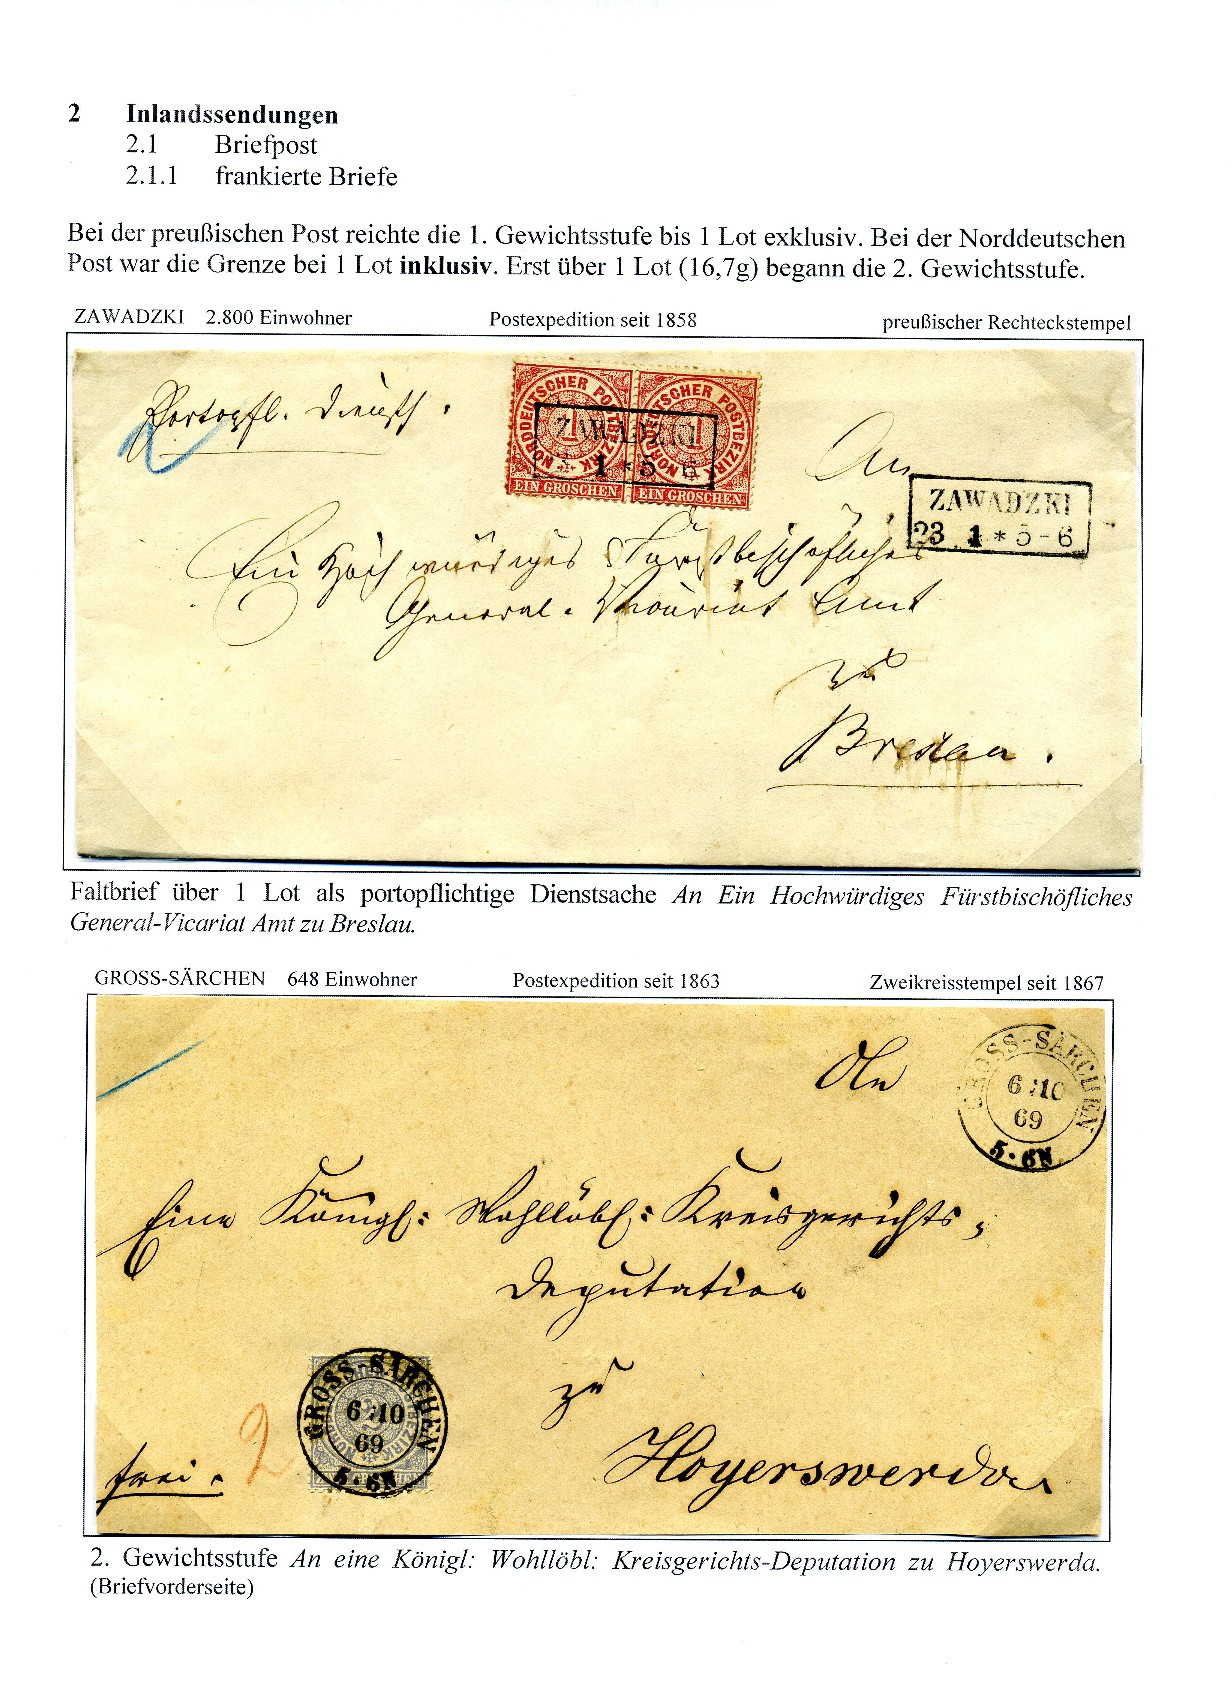 2 Inlandssendungen
2.1 Briefpost
2.1.1 frankierte Briefe
Bei der preußischen Post reichte die 1. Gewichtsstufe bis 1 Lot exklusiv. Bei der Norddeutschen
Post war die Grenze bei 1 Lot inklusiv. Erst über 1 Lot (16,7g) begann die 2. Gewichtsstufe.
ZAWADZKI 2.800 Einwohner Postexpedition seit 1858 preußischer Rechteckstempel
Portopfl. Dienst.
NORDDEUTSCHER POSTBEZIRK
EIN GROSCHEN
NORDDEUTSCHER POSTBEZIRK
EIN GROSCHEN
ZAWADZKI
1 * 5 6
An
ZAWADZKI
23 1 * 5-6
Ein Hochwürdiges Fürstbischöfliches
General-Vicariat Amt
zu
Breslau.
Faltbrief über 1 Lot als portopflichtige Dienstsache An Ein Hochwürdiges Fürstbischöfliches
General-Vicariat Amt zu Breslau.
GROSS-SÄRCHEN 648 Einwohner Postexpedition seit 1863 Zweikreisstempel seit 1867
An
GROSS-SÄRCHEN
6 10
69
5-6N
Eine Königl: Wohllöbl: Kreisgerichts-
Deputation
zu
Hoyerswerda
GROSS-SÄRCHEN
6 10
69
5-6N
2
frei.
2. Gewichtsstufe An eine Königl: Wohllöbl: Kreisgerichts-Deputation zu Hoyerswerda.
(Briefvorderseite)